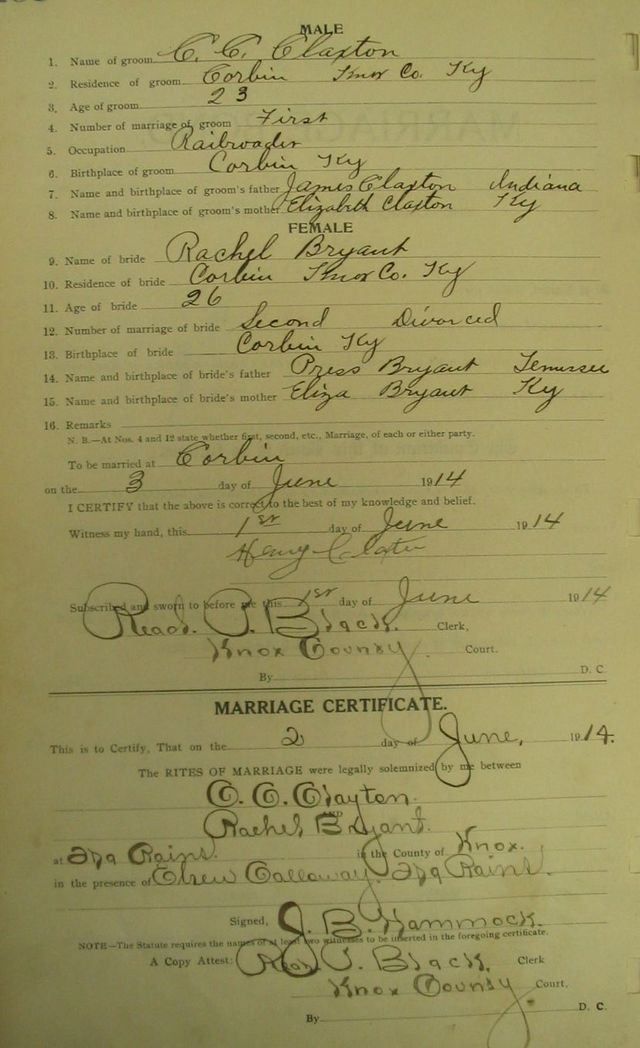 MALE
1. Name of groom C. C. Claxton
2. Residence of groom Corbin Knox Co. Ky
3. Age of groom 23
4. Number of marriage of groom First
5. Occupation Railroader
6. Birthplace of groom Corbin Ky
7. Name and birthplace of groom's father James Claxton Indiana
8. Name and birthplace of groom's mother Elizabeth Claxton Ky
FEMALE
9. Name of bride Rachel Bryant
10. Residence of bride Corbin Knox Co. Ky
11. Age of bride 26
12. Number of marriage of bride Second Divorced
13. Birthplace of bride Corbin Ky
14. Name and birthplace of bride's father Press Bryant Tennessee
15. Name and birthplace of bride's mother Eliza Bryant Ky
16. Remarks
N. B.—At Nos. 4 and 12 state whether first, second, etc., Marriage, of each or either party.
To be married at Corbin
on the 3 day of June 1914
I CERTIFY that the above is correct to the best of my knowledge and belief.
Witness my hand, this 1st day of June 1914
Henry
Subscribed and sworn to before me this 1st day of June 1914
Read P. Black. Clerk,
Knox County. Court.
By D. C.
MARRIAGE CERTIFICATE.
This is to Certify, That on the 2 day of June, 1914.
The RITES OF MARRIAGE were legally solemnized by me between
C. C. Clayton.
AND
Rachel Bryant.
at Rains. in the County of Knox.
in the presence of Callaway. Rains.
Signed, J. B. Hammock.
NOTE—The Statute requires the names of at least two witnesses to be inserted in the foregoing certificate.
A Copy Attest: Read P. Black. Clerk
Knox County Court,
By D. C.